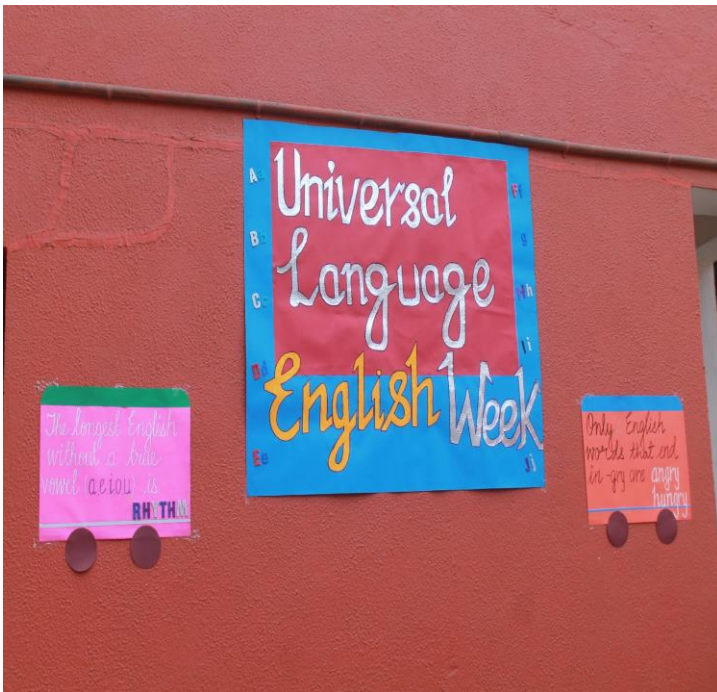 Universal
Language
English Week
Aa
Bb
Cc
Dd
Ee
Ff
g
Hh
Ii
Jj
The longest English
without a true
vowel aeiou is
RHYTHM
Only English
words that end
in -gry are angry
hungry